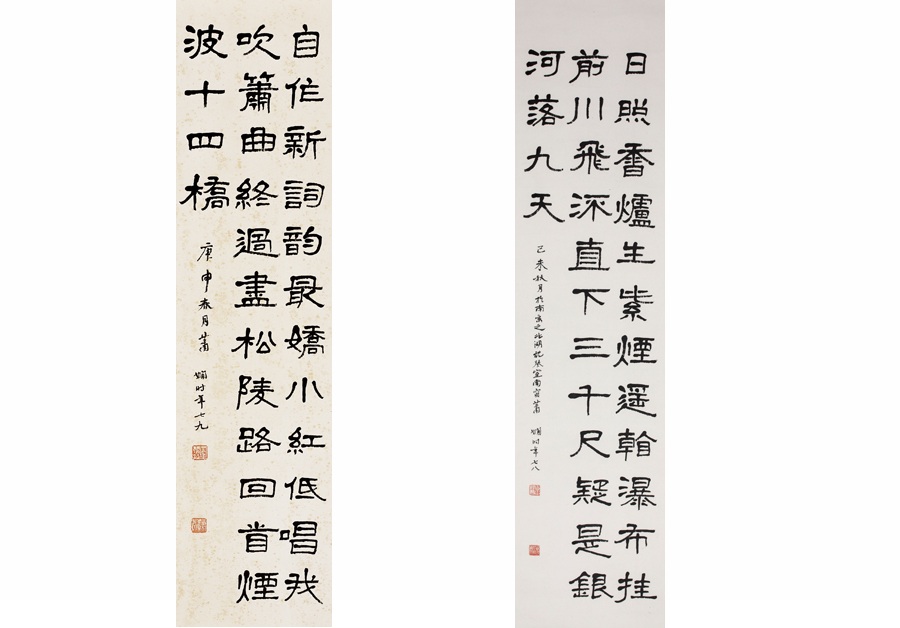 自作新詞韵最嬌小紅低唱我
吹簫曲終過盡松陵路回首煙
波十四橋
庚申春月蕭嫻时年七九
日照香爐生紫煙遥看瀑布挂
前川飛流直下三千尺疑是銀
河落九天
己未秋月於南京之 南窗蕭嫻时年七八